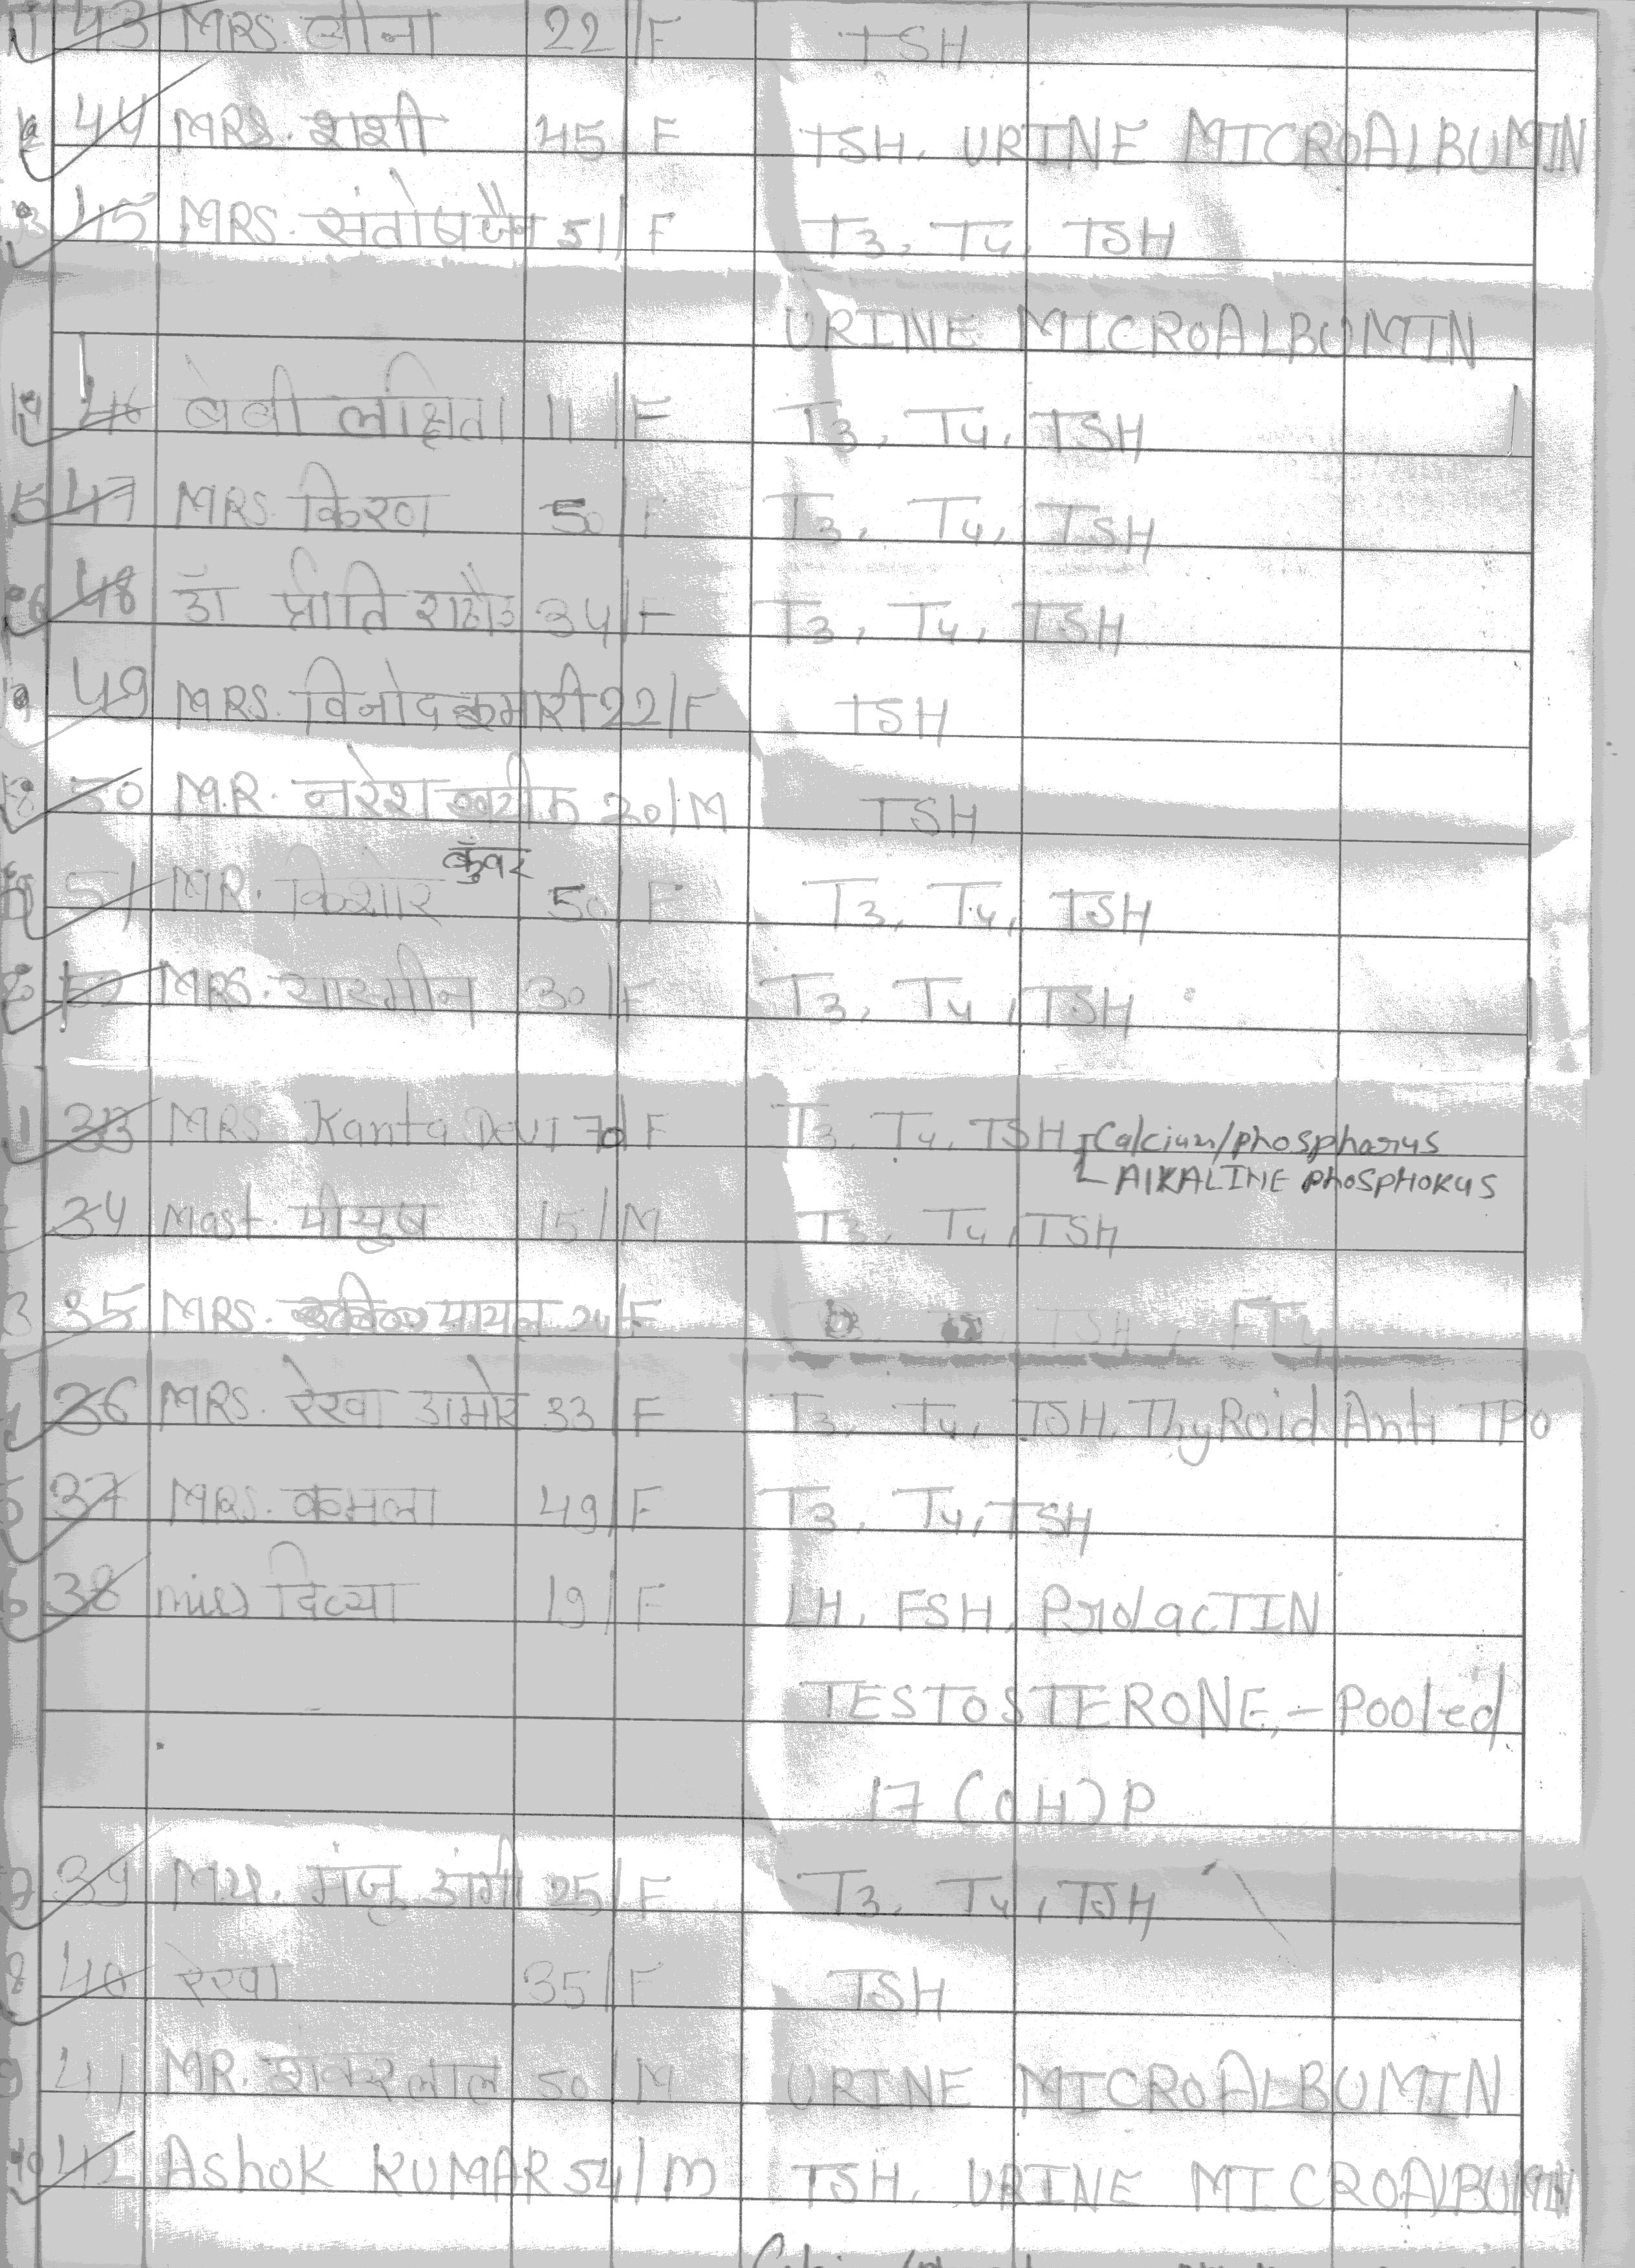 11 43 MRS. लीना 22/F TSH
12 44 MRS. शशी 45/F TSH, URINE MICROALBUMIN
13 45 MRS. संतोष जैन 51/F T3, T4, TSH
URINE MICROALBUMIN
14 46 बेबी लक्षिता 11/F T3, T4, TSH
15 47 MRS. किरण 50/F T3, T4, TSH
16 48 डॉ प्रीति राठौड 34/F T3, T4, TSH
49 MRS. विनोद कुमारी 22/F TSH
18 50 M.R. नरेश खटीक 20/M TSH
कुँवर
51 MR. किशोर 50/F T3, T4, TSH
20 52 MRS. यास्मीन 30/F T3, T4, TSH
1 33 MRS Kanta Devi 70/F T3, T4, TSH, Calcium/phosphorus
ALKALINE PhOSPHORUS
34 Mast. पीयुष 15/M T3, T4, TSH
3 35 MRS. पायल 24/F TSH, FT4
4 36 MRS. रेखा 33/F T3, T4, TSH, ThyRoid Anti TPO
5 37 MRS. कमला 49/F T3, T4, TSH
6 38 miss दिव्या 19/F LH, FSH, ProLacTIN
TESTOSTERONE, - Pooled
17 (OH) P
39 मंजू डांगी 25/F T3, T4, TSH
8 40 रेखा 35/F TSH
9 41 MR. शंकरलाल 50/M URINE MICROALBUMIN
10 42 AshoK KUMAR 54/M TSH, URINE MICROALBUMIN